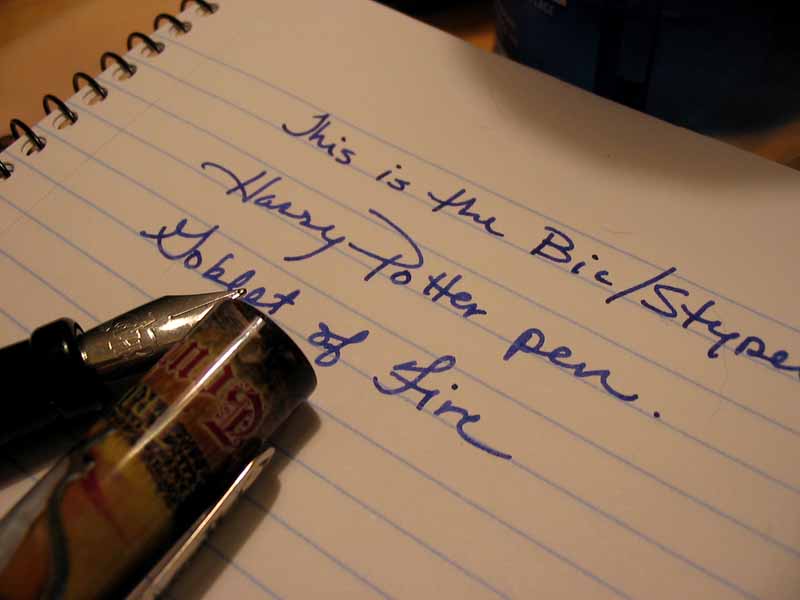 This is the Bic/Stypen
Harry Potter pen.
Goblet of Fire